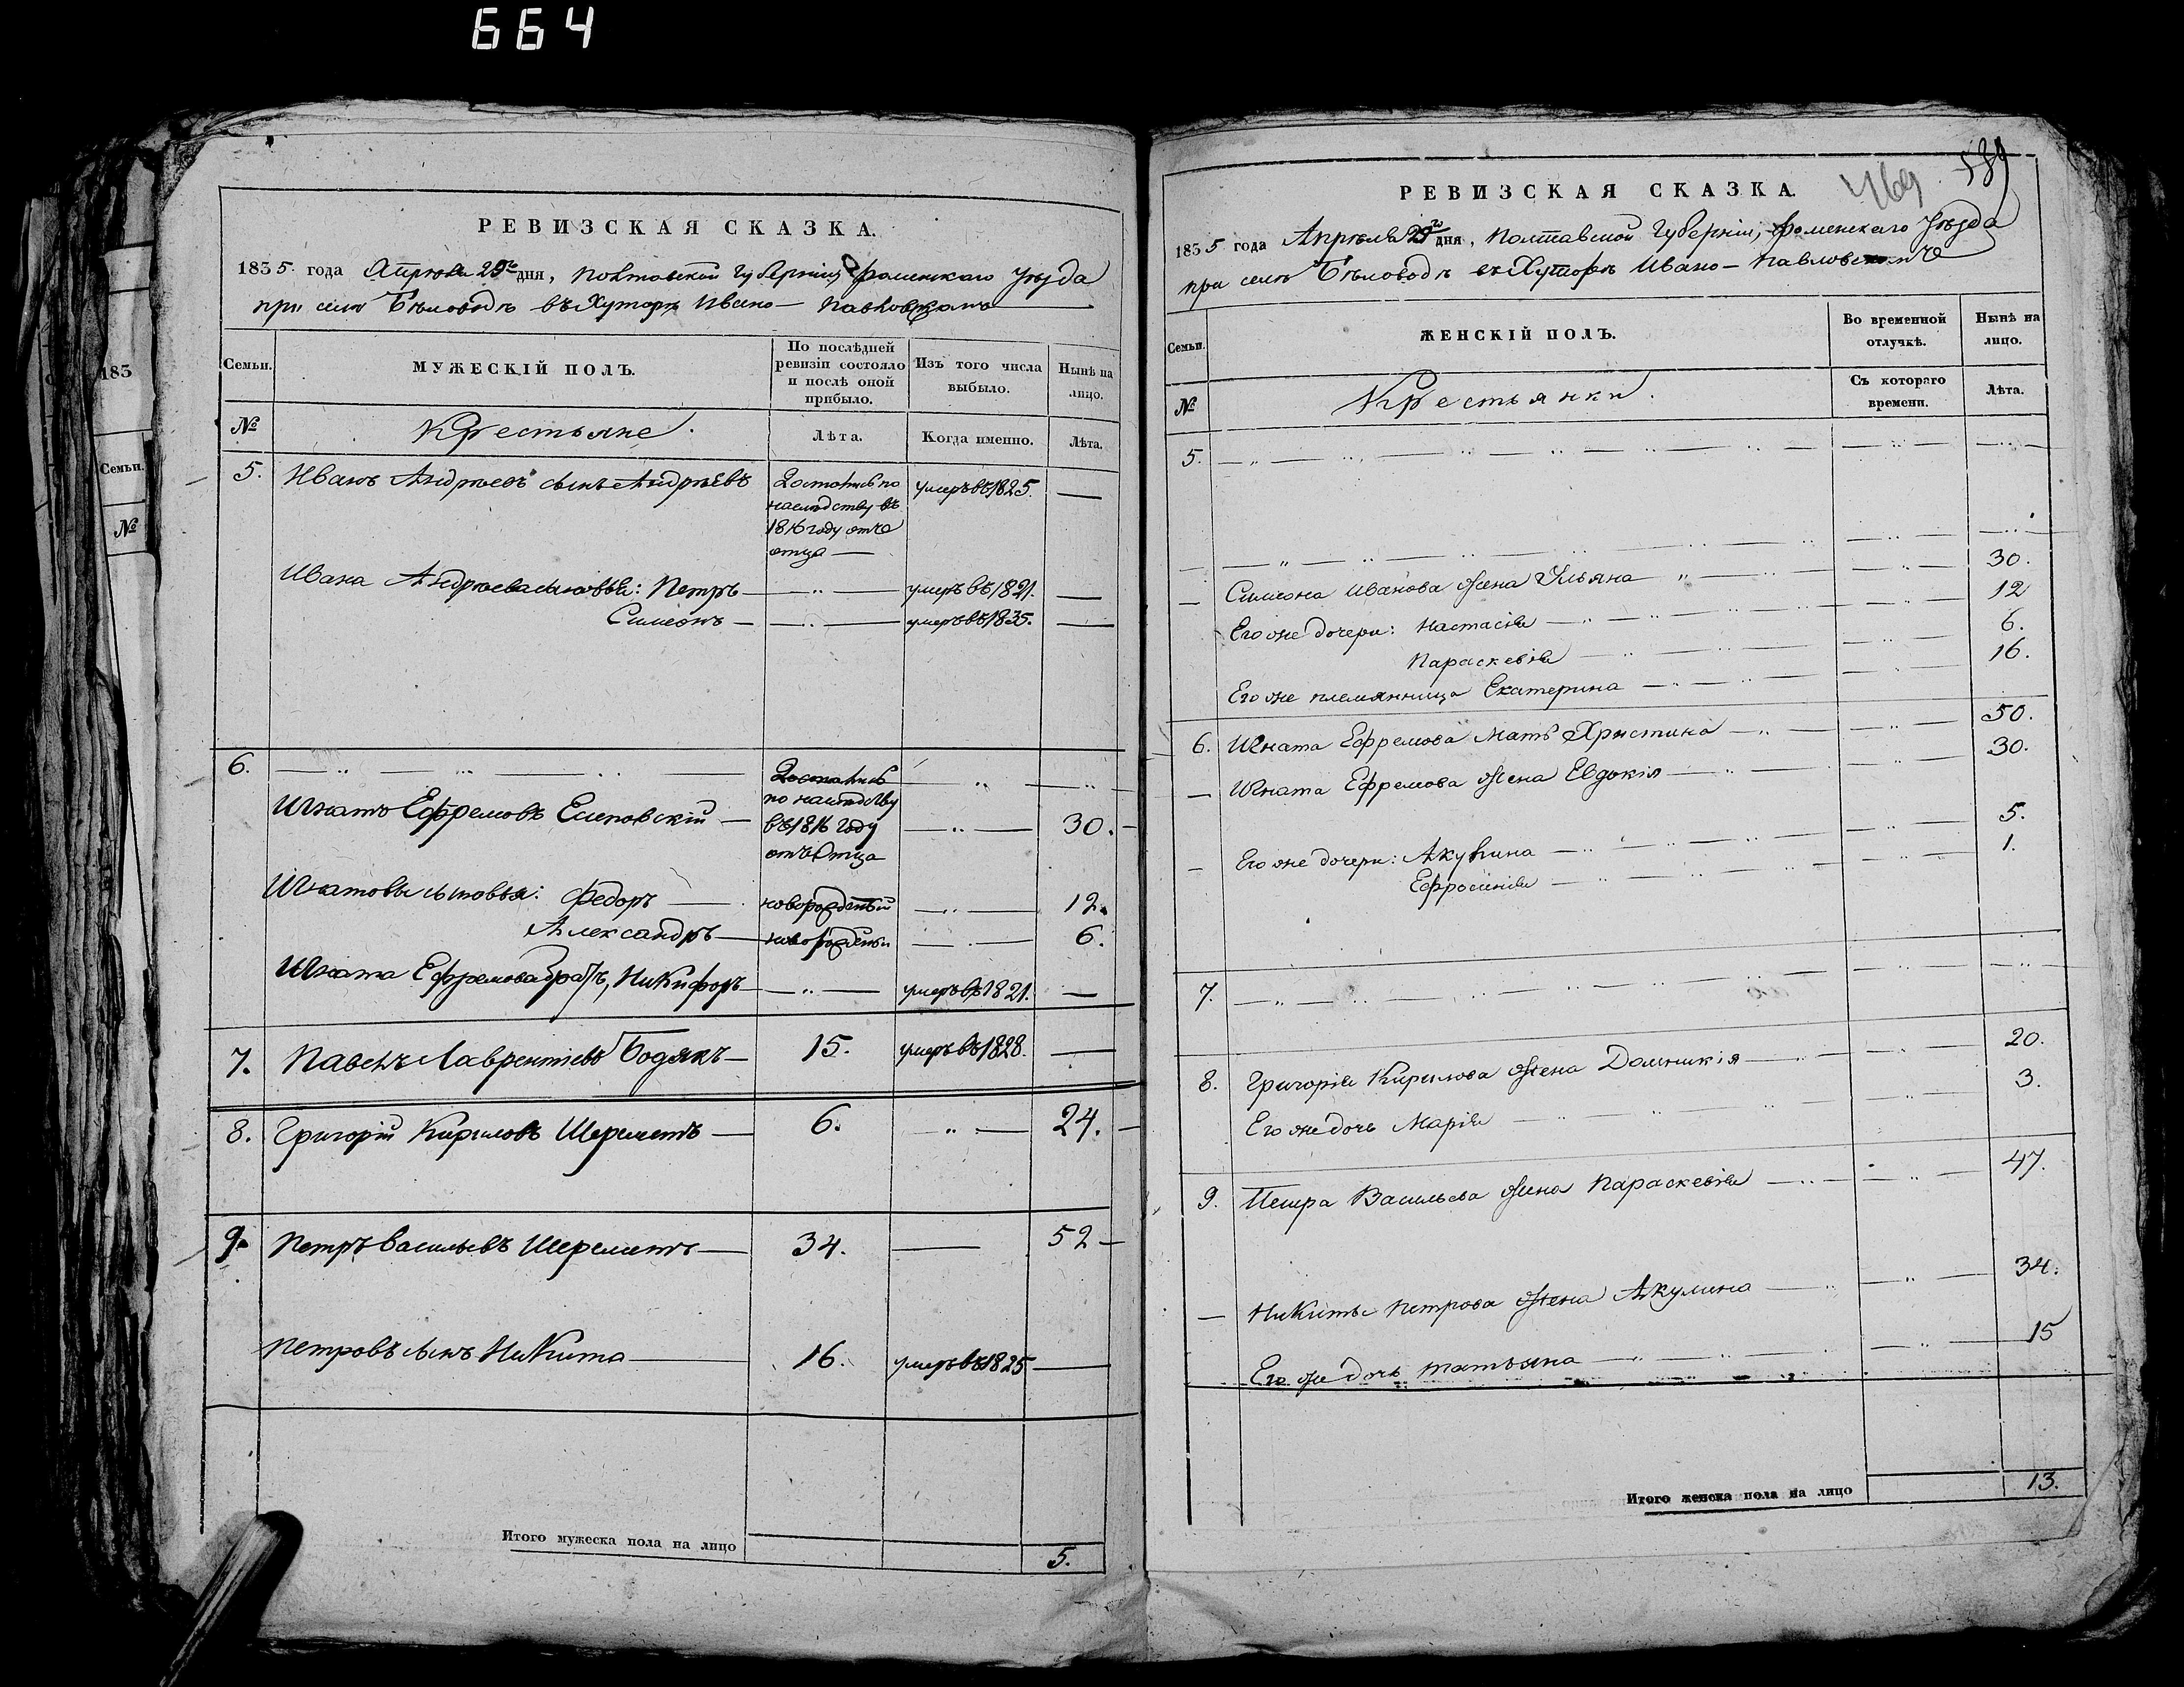 664
РЕВИЗСКАЯ СКАЗКА.
1835 года Апреля 29го дня, Полтавской Губерніи, Роменскаго Уѣзда
при селѣ Бѣловодѣ въ Хуторѣ Ивано-Павловскомъ
Семьи. МУЖЕСКІЙ ПОЛЪ. По послѣдней ревизіи состояло и послѣ оной прибыло. Изъ того числа выбыло. Нынѣ на лицо.
№ Крестьяне. Лѣта. Когда именно. Лѣта.
5. Иванъ Андреевъ сынъ Андрѣевъ Достался по умеръ въ 1825. —
наслѣдству въ
1816 году отъ
отца —
Ивана Андреева сыновья: Петръ — „ — умеръ въ 1821. —
Симеонъ — „ — умеръ въ 1835. —
6. — „ — Достались — „ —
по наслѣдству
Игнатъ Ефремовъ — въ 1816 году — „ — 30.
отъ Отца
Игнатовы сыновья: Федоръ — новорожденый — „ — 12.
Александръ — новорожденый — „ — 6.
Игната Ефремова братъ, Никифоръ — „ — умеръ въ 1821. —
7. Павелъ Лаврентіевъ Бодякъ — 15. умеръ въ 1828. —
8. Григорій Кириловъ Шереметъ — 6. — „ — 24.
9. Петръ Васильевъ Шереметъ — 34. — 52
Петровъ сынъ Никита — 16. умеръ въ 1825 —
Итого мужеска пола на лицо 5.
469 539
РЕВИЗСКАЯ СКАЗКА.
1835 года Апрѣля 29го дня, Полтавской Губерніи, Роменскаго Уѣзда
при селѣ Бѣловодѣ въ Хуторѣ Ивано-Павловскомъ
Семьи. ЖЕНСКІЙ ПОЛЪ. Во временной отлучкѣ. Нынѣ на лицо.
№ Крестьянки. Съ котораго времени. Лѣта.
5. — „ —
— „ —
Симеона Иванова жена Ульяна — „ — 30.
Его же дочери: Настасія — „ — 12
Параскевія — „ — 6.
Его же племянница Екатерина — „ — 16.
6. Игната Ефремова Мать Христина — „ — 50.
Игната Ефремова жена Евдокія — „ — 30.
Его же дочери: Акулина — „ — 5.
Ефросинія — „ — 1.
7. — „ —
8. Григорія Кирилова жена Домникія — „ — 20.
Его же дочь Марія — „ — 3.
9. Петра Васильева жена Параскевія — „ — 47.
Никиты Петрова жена Акулина — „ — 34.
Его же дочь Татьяна — „ — 15
Итого женска пола на лицо 13.
183
Семьи.
№